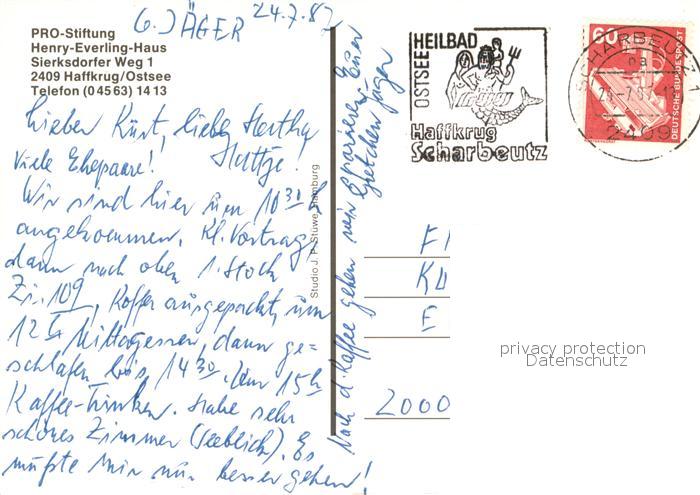 G. JÄGER 24.7.87
PRO-Stiftung
Henry-Everling-Haus
Sierksdorfer Weg 1
2409 Haffkrug/Ostsee
Telefon (0 45 63) 14 13
Lieber Kurt, liebe Hertha
Viele Ehepaare! Hattge!
Wir sind hier um 10 30 h
angekommen, Kl. Vortrag,
dann nach oben 1. Stock
Zi. 109, Koffer ausgepackt, um
12 h Mittagessen, dann ge=
schlafen bis 14 30. Um 15 h
Kaffee-Trinken. Habe sehr
schönes Zimmer (Seeblick). Es
müßte mir nur besser gehen!
Nach d. Kaffee gehen wir spazieren. Euer
Gretchen Jäger
Studio J. F. Stüwe, Hamburg
OSTSEE HEILBAD
Haffkrug
Scharbeutz
60
DEUTSCHE BUNDESPOST
SCHARBEUTZ 1
2409
F
KU
E
2000
privacy protection
Datenschutz